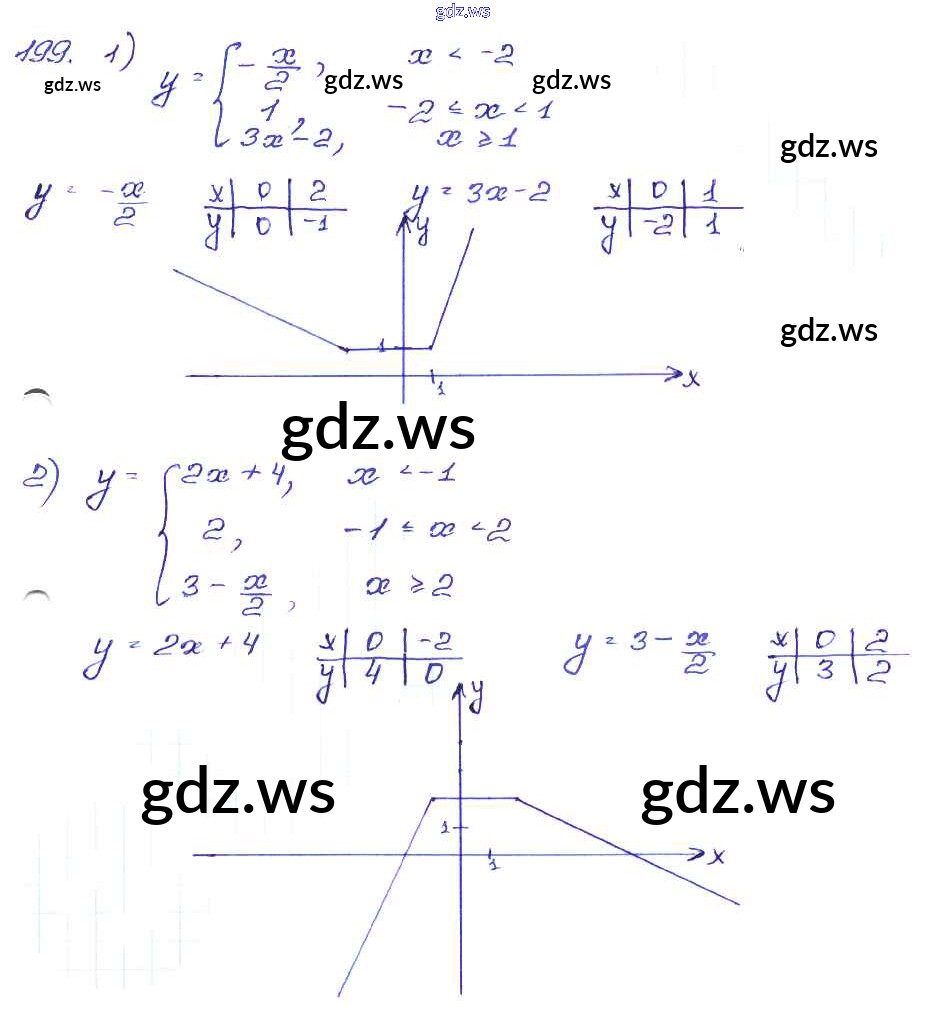 gdz.ws
199. 1) y = { -x/2, x < -2
1, -2 ≤ x < 1
3x-2, x ≥ 1
gdz.ws gdz.ws gdz.ws
gdz.ws
y = -x/2 x | 0 | 2 y = 3x-2 x | 0 | 1
y | 0 | -1 y | -2 | 1
y
gdz.ws
1
x
1
gdz.ws
2) y = { 2x+4, x < -1
2, -1 ≤ x < 2
3 - x/2, x ≥ 2
y = 2x+4 x | 0 | -2 y = 3 - x/2 x | 0 | 2
y | 4 | 0 y | 3 | 2
y
gdz.ws gdz.ws
1
x
1